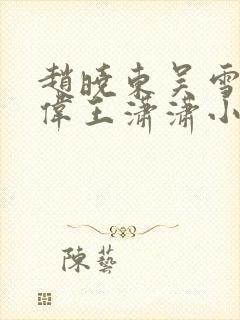 趙曉東吳雪
偉王瀟瀟小
陳藝